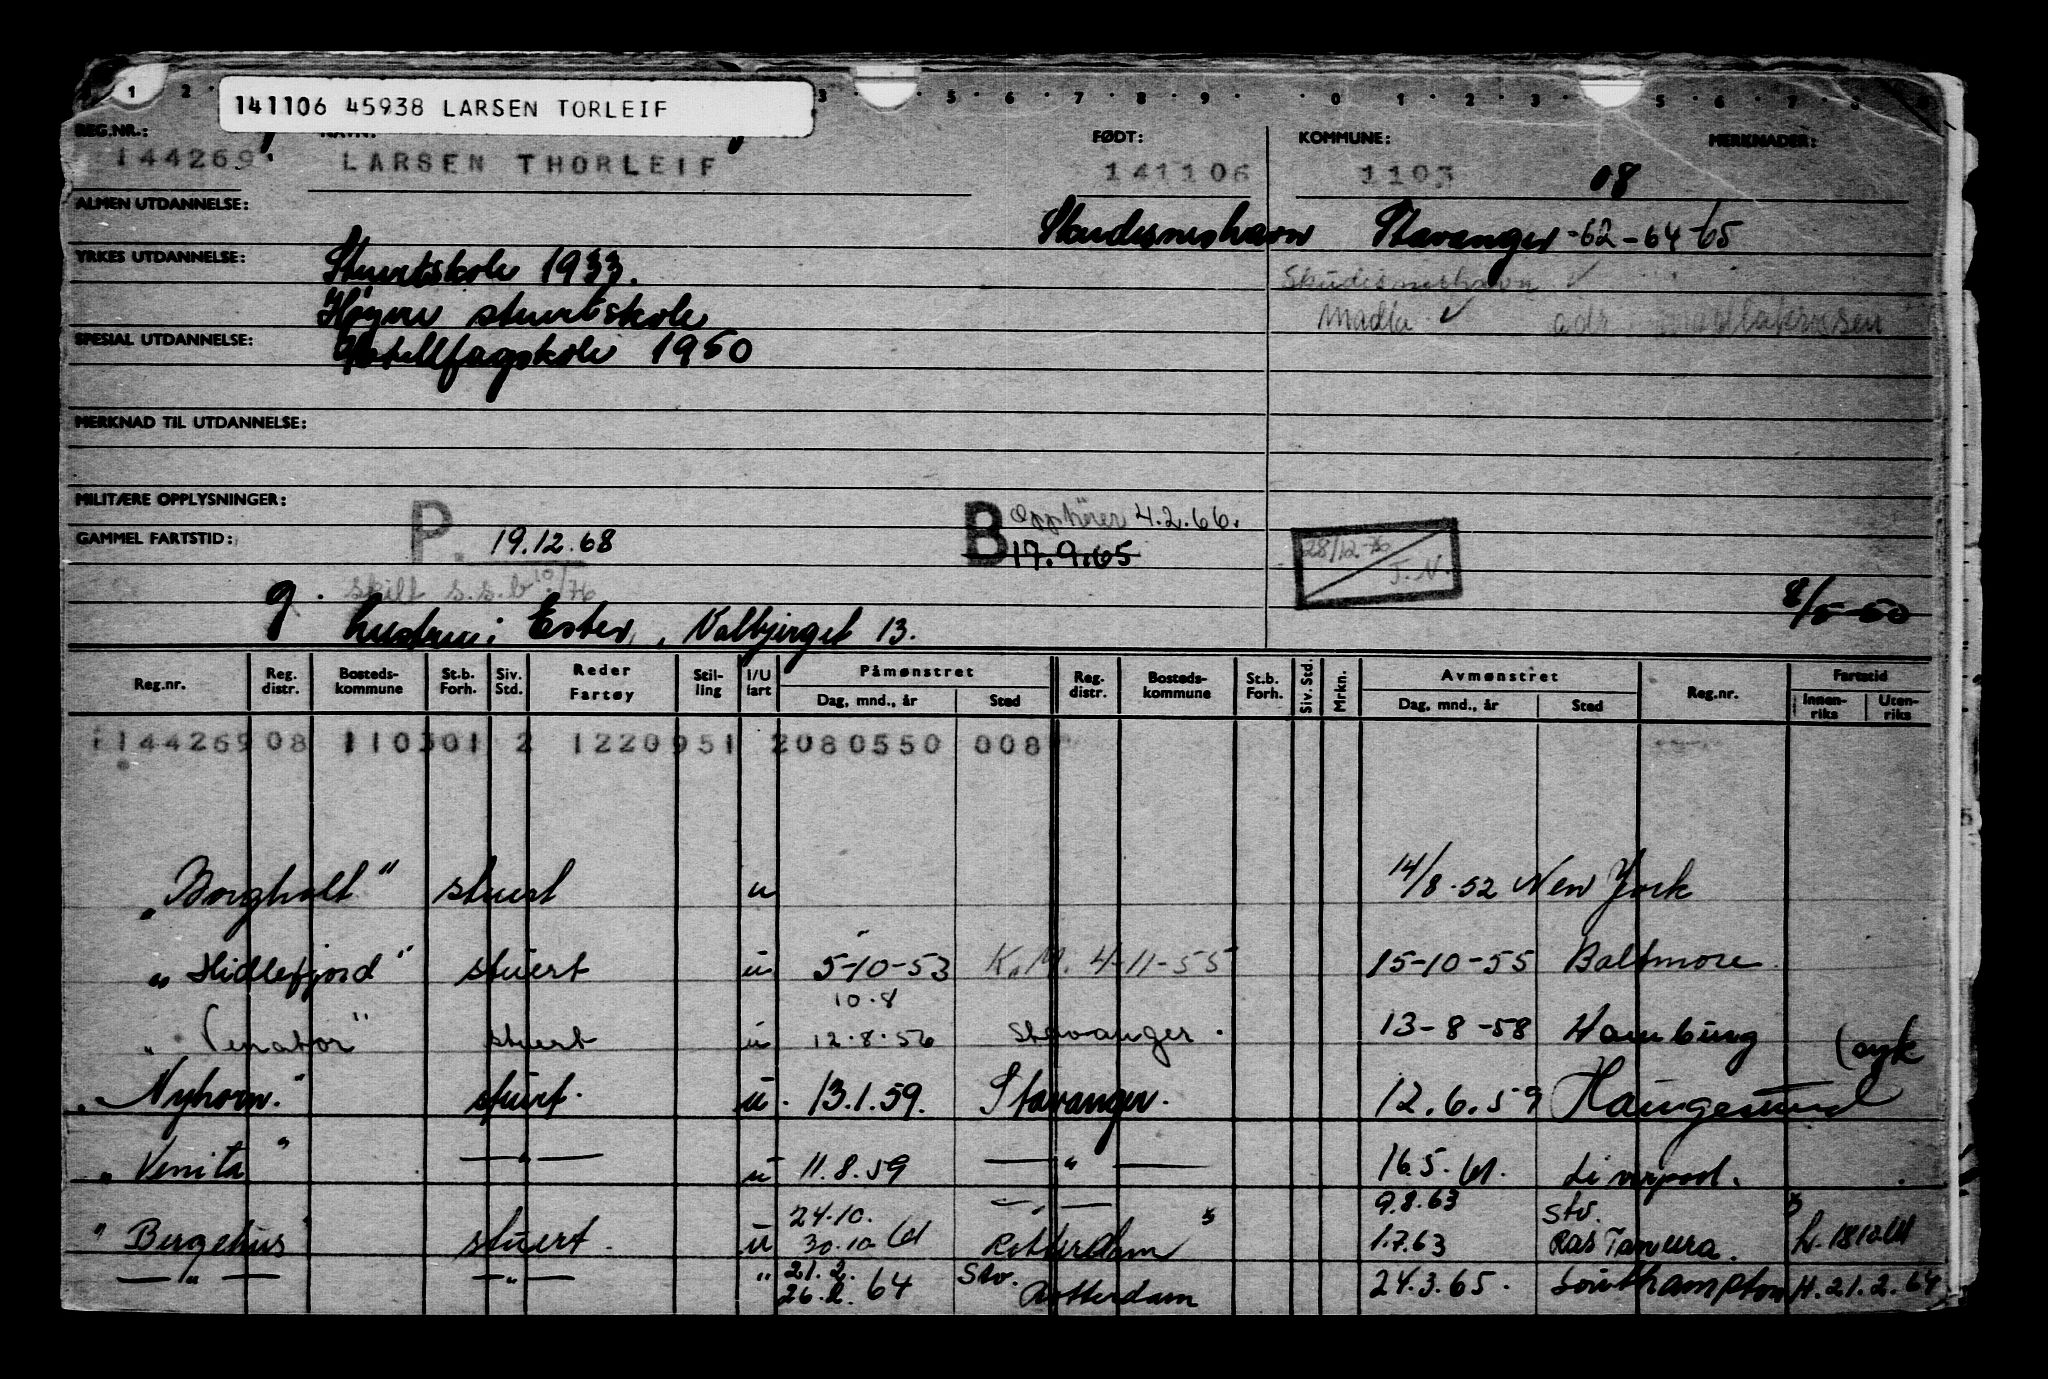 1 2 3 5 6 7 8 9 0 1 2 3 5 6 7 8
141106 45938 LARSEN TORLEIF
REG.NR.: NAVN: FØDT: KOMMUNE: MERKNADER:
144269 LARSEN THORLEIF 141106 1103 08
ALMEN UTDANNELSE: Skudesneshavn Stavanger -62-64-65
YRKES UTDANNELSE: Stuertskole 1933. Skudesneshavn ✓
Høyere stuertskole Madla ✓ adr
SPESIAL UTDANNELSE: Hotellfagskole 1950
MERKNAD TIL UTDANNELSE:
MILITÆRE OPPLYSNINGER: P. B Opphører 4.2.66.
GAMMEL FARTSTID: 19.12.68 17.9.65 28/12-76 T.N.
g. skilt s.s.b 10/76 8/5-50
hustru: Ester, Kalbjerget 13.
Reg.nr. Reg. distr. Bosteds-kommune St.b. Forh. Siv. Std. Reder Fartøy Stil-ling I/U fart Påmønstret Dag, mnd., år Sted Reg. distr. Bosteds-kommune St.b. Forh. Siv. Std. Mrkn. Avmønstret Dag, mnd., år Sted Reg.nr. Fartstid Innen-riks Uten-riks
1144269 08 110301 2 1220951 2080550 008
"Borgholt" stuert u 14/8.52 New York
"Hidlefjord" stuert u 5-10-53 K.M. 4-11-55 15-10-55 Baltmore
10.8
"Venator" stuert u 12.8.56 Stavanger. 13-8-58 Hamburg
(syk
"Nyhorn." stuert. u. 13.1.59. Stavanger. 12.6.59 Haugesund
"Venita" —"— u 11.8.59 —"— 16.5.61. Liverpool.
24.10. —"— 9.8.63 Stv.
"Bergehus" stuert. u 30.10 61 Rotterdam 1.7.63 Ras Tanura. h. 18 12 61
—"— —"— " 21.2. Stv.
26.2. 64 Rotterdam 24.3.65. Southampton H. 21.2.64